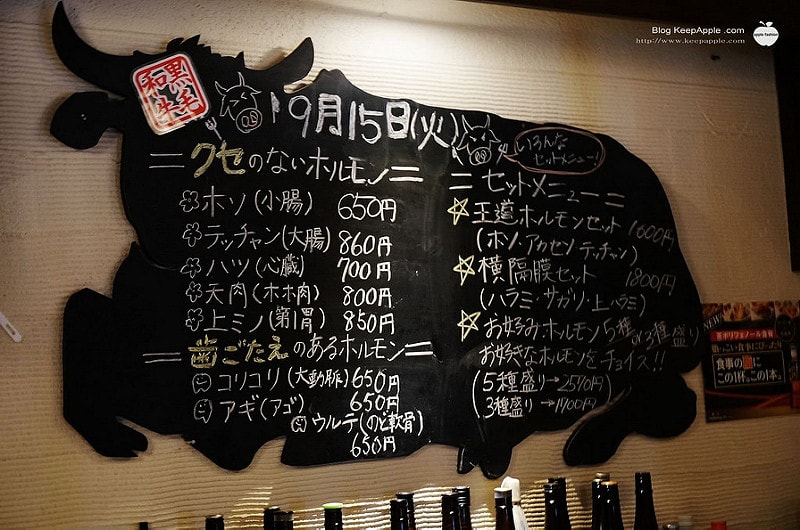 Blog KeepApple .com
http://www.keepapple.com
apple fashion
黒毛
和牛
9月15日(火)
いろんな
セットメニュー!
= クセのないホルモン =
ホソ(小腸) 650円
テッチャン(大腸) 860円
ハツ(心臓) 700円
天肉(ホホ肉) 800円
上ミノ(第1胃) 850円
= 歯ごたえのあるホルモン =
コリコリ(大動脈) 650円
アギ(アゴ) 650円
ウルテ(のど軟骨)
650円
= セットメニュー =
☆王道ホルモンセット 1600円
(ホソ・アカセン・テッチャン)
☆横隔膜セット 1800円
(ハラミ・サガリ・上ハラミ)
☆お好みホルモン5種or3種盛り
お好きなホルモンをチョイス!!
(5種盛り→2570円)
(3種盛り→1700円)
NEW
食事の脂に
この1杯。この1本。